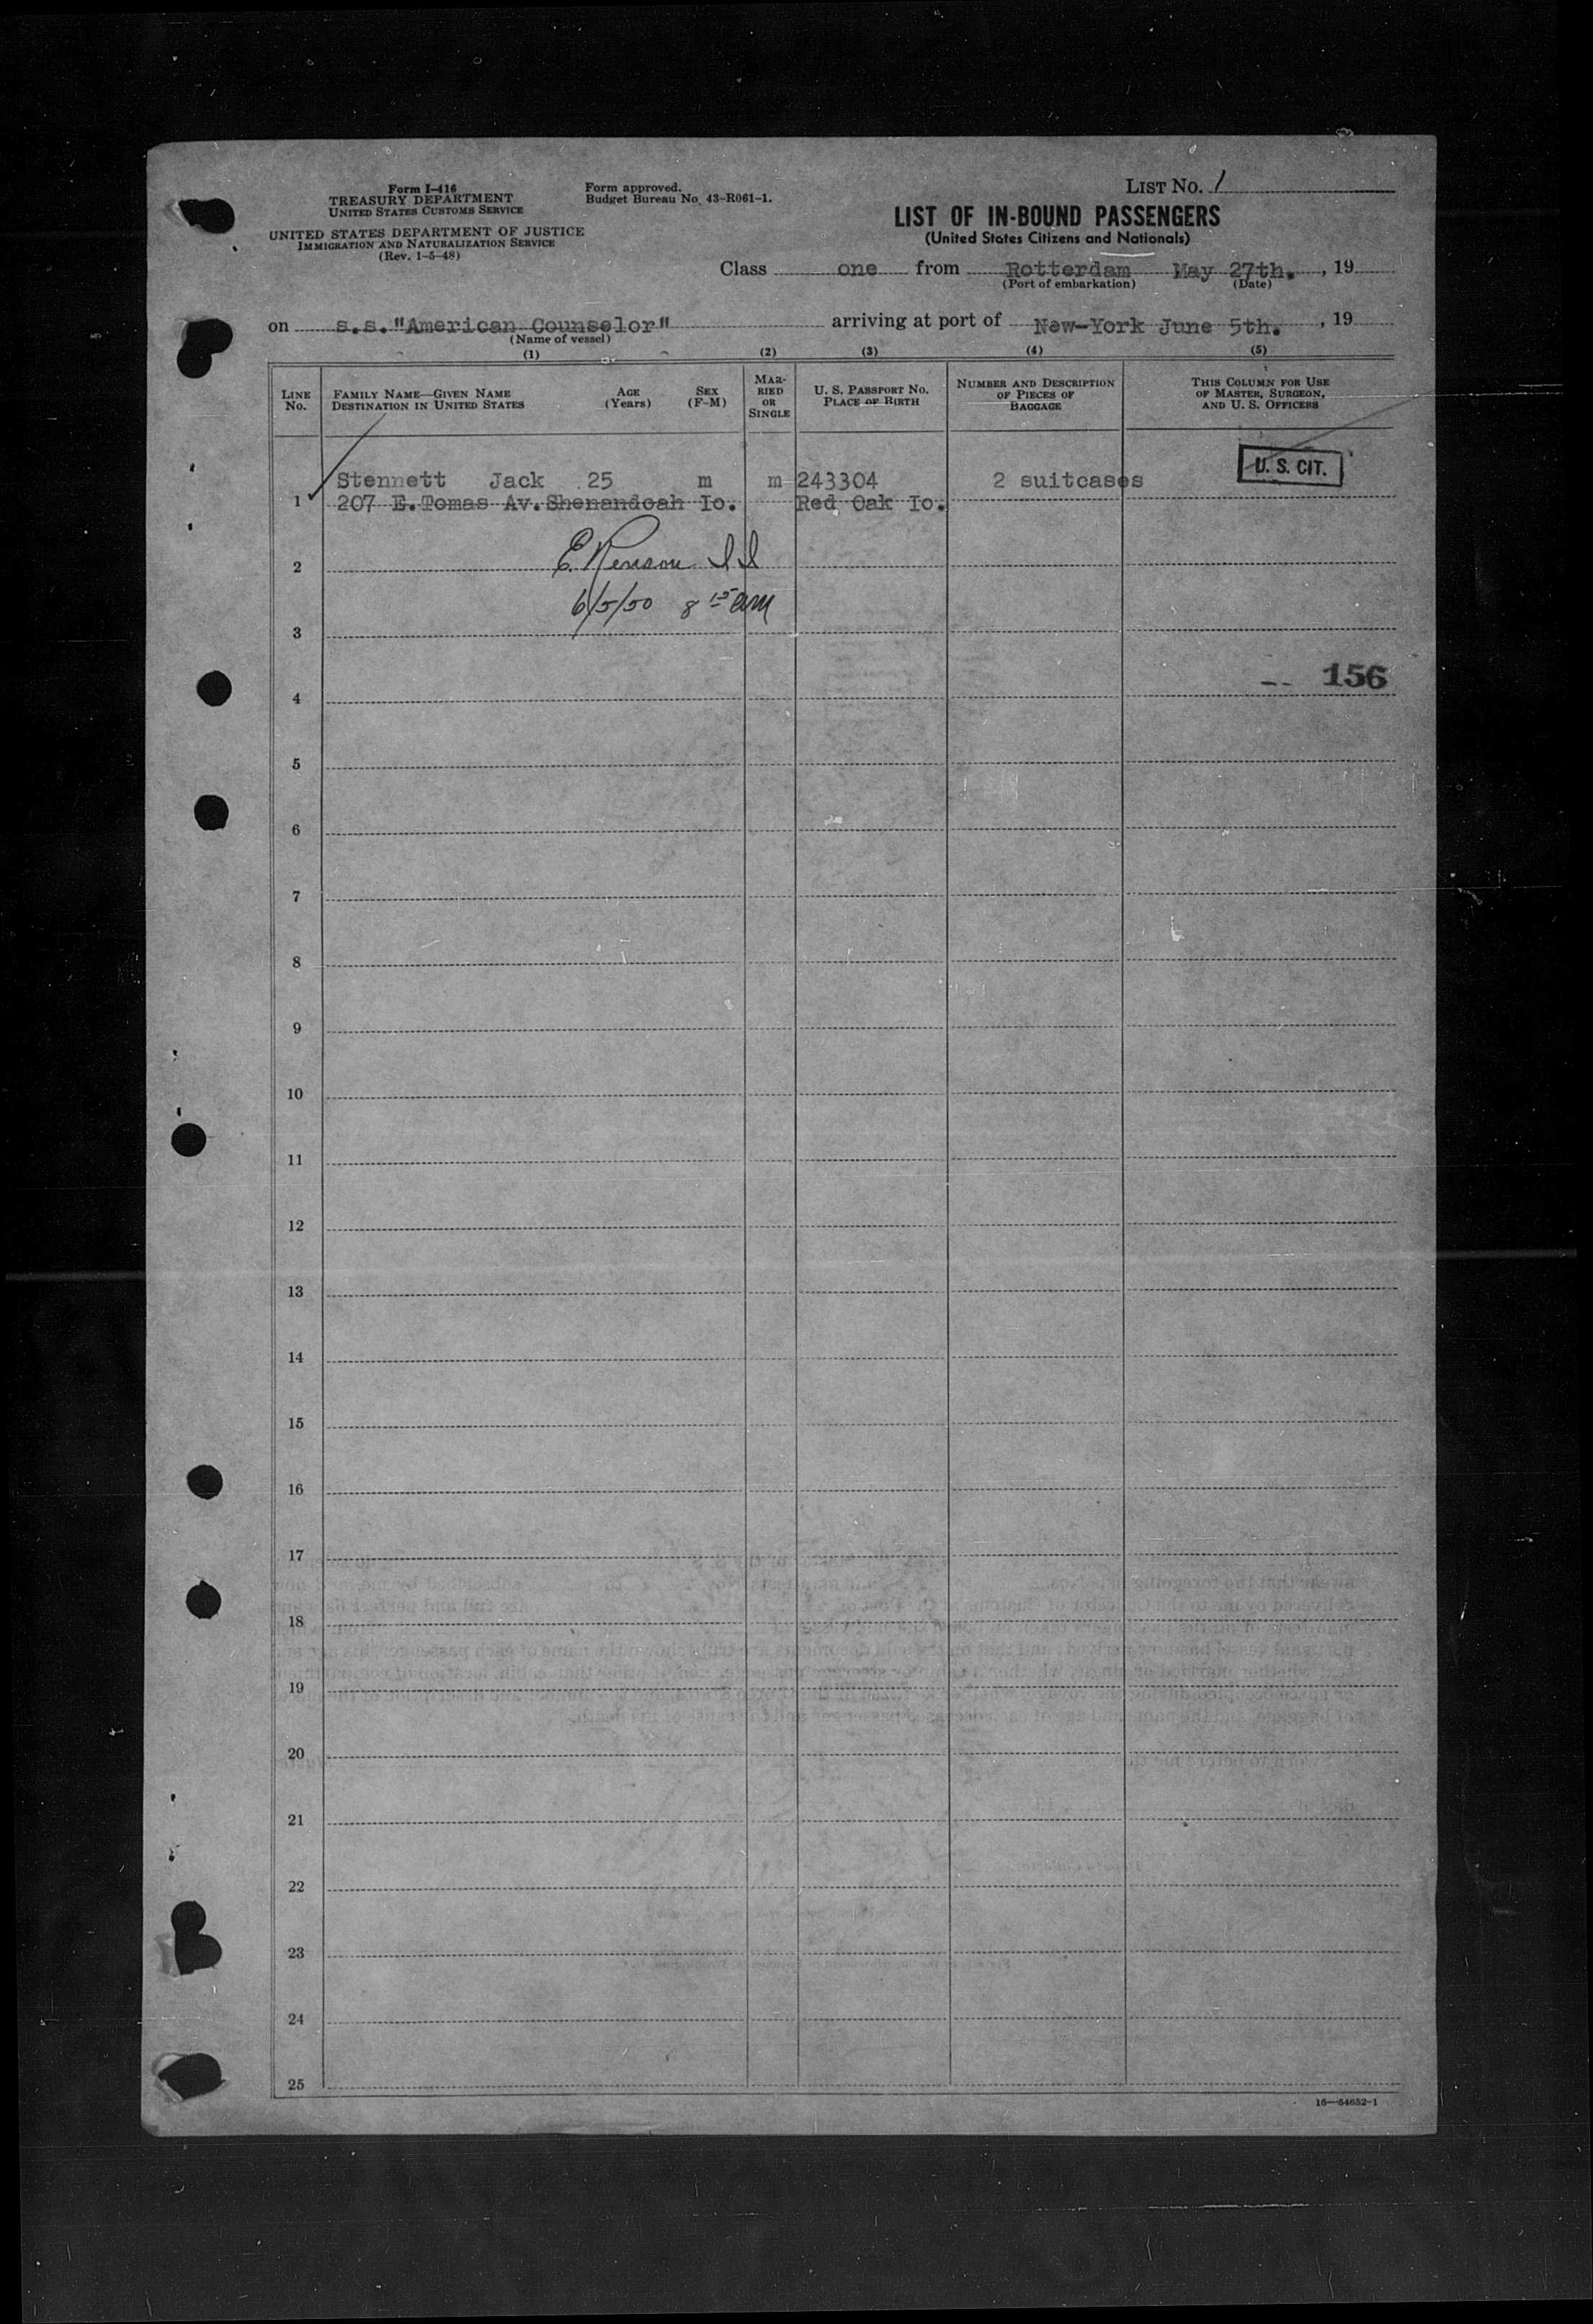 Form I-416
TREASURY DEPARTMENT
UNITED STATES CUSTOMS SERVICE
UNITED STATES DEPARTMENT OF JUSTICE
IMMIGRATION AND NATURALIZATION SERVICE
(Rev. 1-5-48)
Form approved.
Budget Bureau No. 43-R061-1.
LIST No. 1
LIST OF IN-BOUND PASSENGERS
(United States Citizens and Nationals)
Class one from Rotterdam May 27th. , 19
(Port of embarkation) (Date)
on s.s."American Counselor" arriving at port of New-York June 5th. , 19
(Name of vessel)
(1) (2) (3) (4) (5)
LINE No. FAMILY NAME—GIVEN NAME DESTINATION IN UNITED STATES AGE (Years) SEX (F-M) MARRIED OR SINGLE U. S. PASSPORT No. PLACE OF BIRTH NUMBER AND DESCRIPTION OF PIECES OF BAGGAGE THIS COLUMN FOR USE OF MASTER, SURGEON, AND U. S. OFFICERS
Stennett Jack 25 m m 243304 2 suitcases U. S. CIT.
1 207 E.Tomas Av.Shenandoah Io. Red Oak Io.
2 E.
6/5/50 8 15 am
3
-- 156
4
5
6
7
8
9
10
11
12
13
14
15
16
17
18
19
20
21
22
23
24
25
16—54652-1